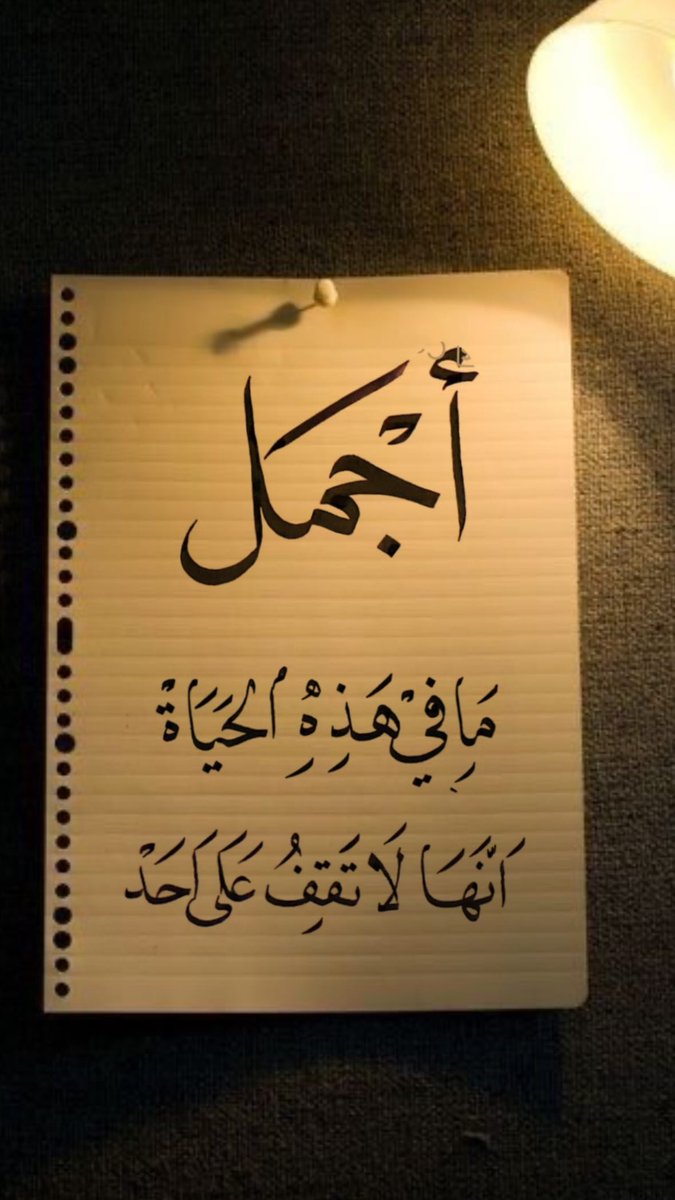 أَجْمَل
مَا فِيْ هَذِهِ الحَيَاةْ
اَنَّهَا لَا تَقِفُ عَلَى اَحَدْ